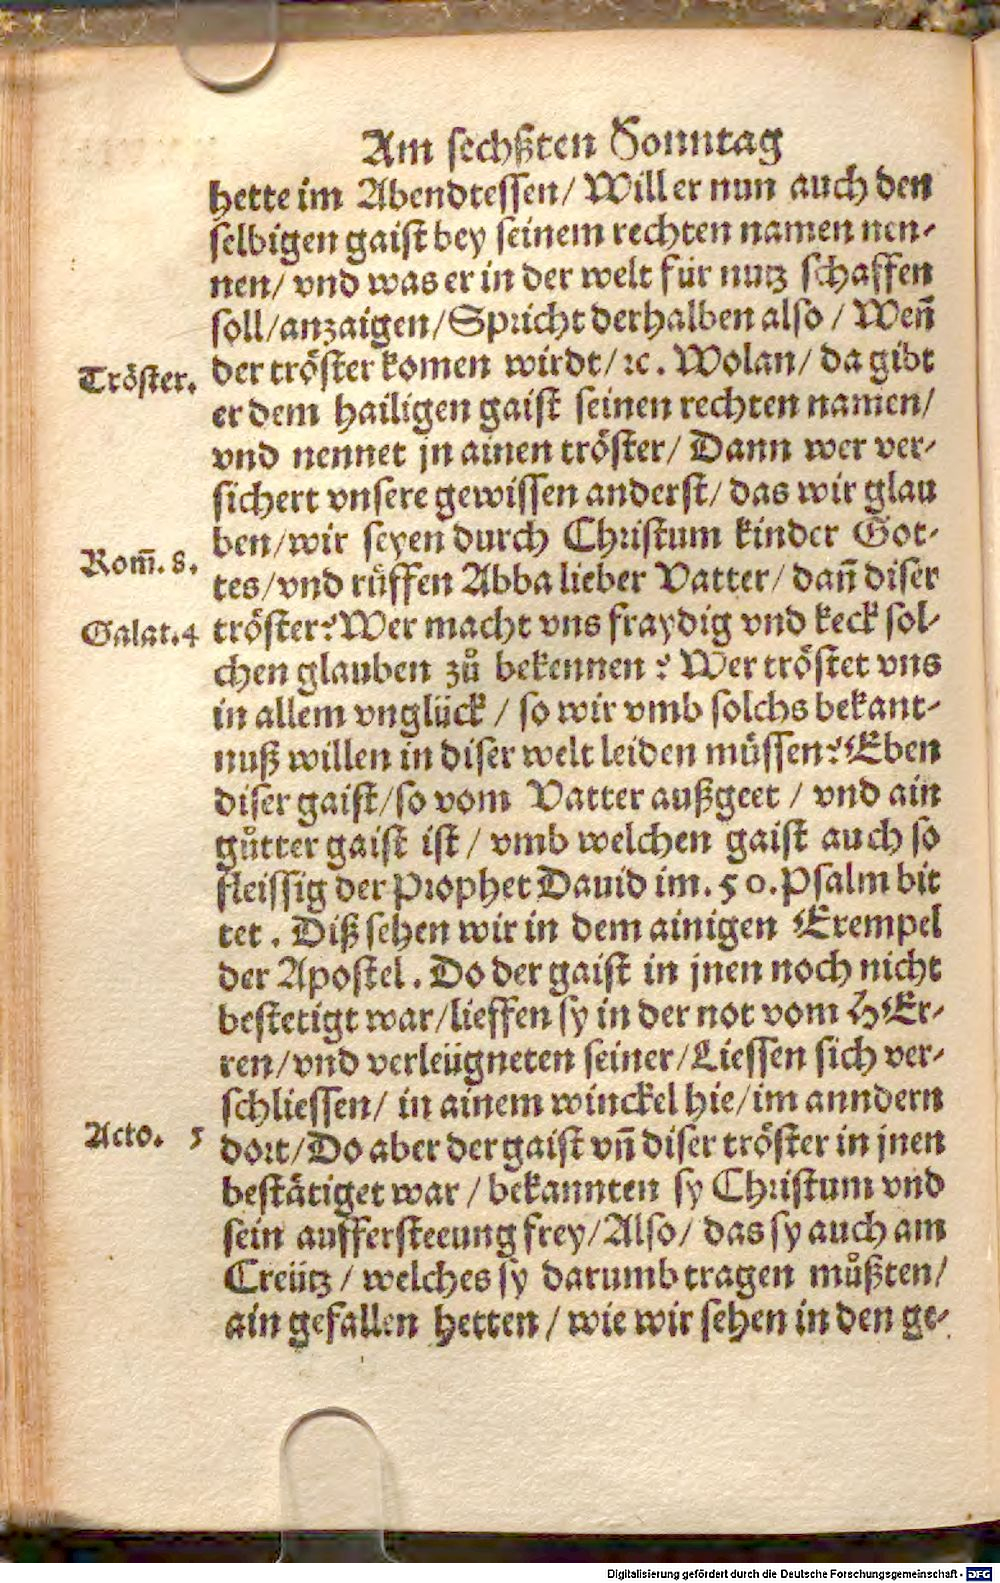 Am sechßten Sonntag
hette im Abendtessen/ Will er nun auch den
selbigen gaist bey seinem rechten namen nen-
nen/ vnd was er in der welt für nutz schaffen
soll/anzaigen/Spricht derhalben also/ Weñ
Tröster. der tröster komen wirdt/ ꝛc. Wolan/ da gibt
er dem hailigen gaist seinen rechten namen/
vnd nennet jn ainen tröster/ Dann wer ver-
sichert vnsere gewissen anderst/ das wir glau
ben/wir seyen durch Christum kinder Got-
Rom̃. 8. tes/vnd rüffen Abba lieber Vatter/ dañ diser
Galat.4 tröster? Wer macht vns fraydig vnd keck sol-
chen glauben zů bekennen? Wer tröstet vns
in allem vnglück/ so wir vmb solchs bekant-
nuß willen in diser welt leiden müssen? Eben
diser gaist/so vom Vatter außgeet/ vnd ain
gůtter gaist ist/ vmb welchen gaist auch so
fleissig der Prophet Dauid im. 50. Psalm bit
tet. Diß sehen wir in dem ainigen Exempel
der Apostel. Do der gaist in jnen noch nicht
bestetigt war/lieffen sy in der not vom HEr-
ren/vnd verleügneten seiner/Liessen sich ver-
schliessen/ in ainem winckel hie/im anndern
Acto. 5 dort/Do aber der gaist vñ diser tröster in jnen
bestätiget war/ bekannten sy Christum vnd
sein auffersteeung frey/Also/ das sy auch am
Creütz/ welches sy darumb tragen můßten/
ain gefallen hetten/ wie wir sehen in den ge-
Digitalisierung gefördert durch die Deutsche Forschungsgemeinschaft - DFG